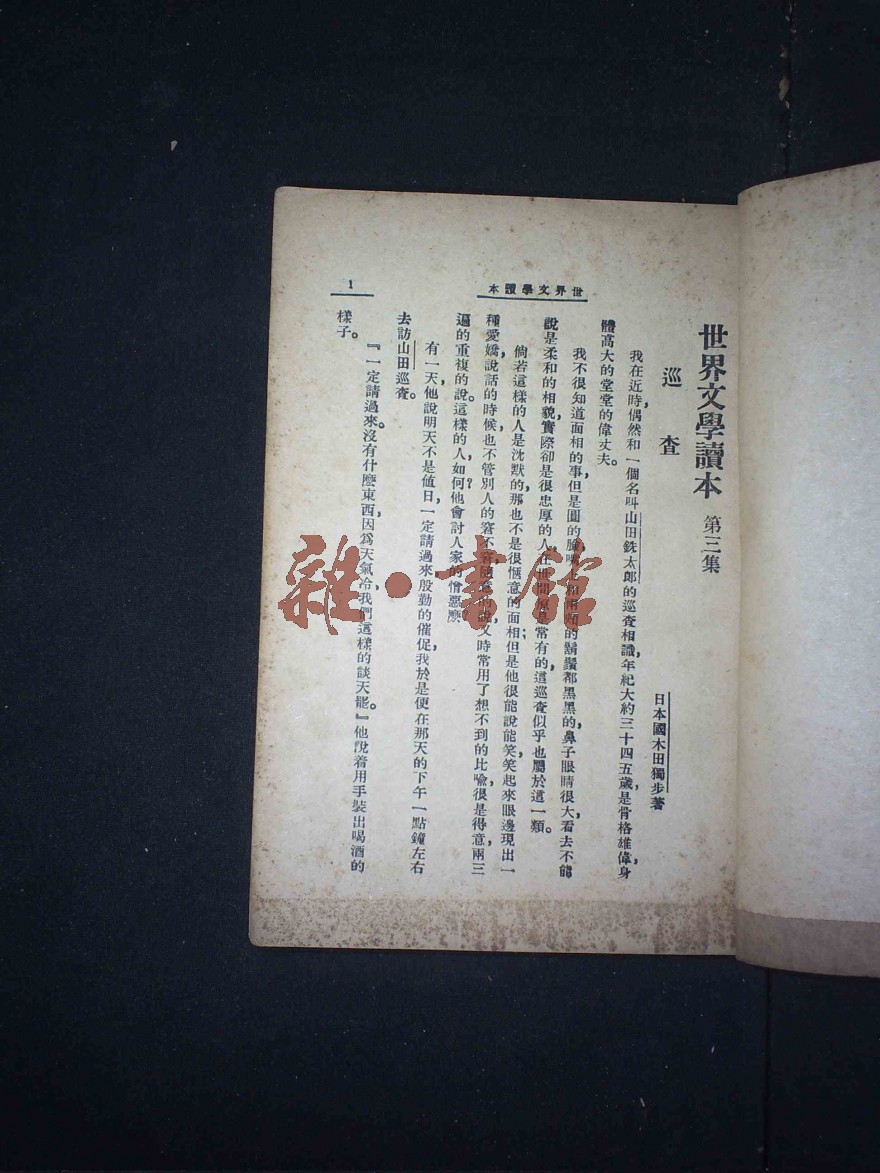 世界文學讀本 第三集
巡查
日本國木田獨步著
我在近時,偶然和一個名叫山田銑太郎的巡查相識,年紀大約三十四五歲,是骨格雄偉,身
體高大的堂堂的偉丈夫。
我不很知道面相的事,但是圓的臉,嘴上和兩頰的鬍鬚都黑黑的,鼻子眼睛很大,看去不能
說是柔和的相貌,實際卻是很忠厚的人,在世間原是常有的,這巡查似乎也屬於這一類。
倘若這樣的人是沈默的,那也不是很愜意的面相;但是他很能說能笑,笑起來眼邊現出一
種愛嬌,說話的時候也不管別人的窘不窘,隨意的說,又時常用了想不到的比喩,很是得意,兩三
遍的重複的說。這樣的人,如何他會討人家的憎惡麽?
有一天,他說明天不是值日,一定請過來,殷勤的催促,我於是便在那天的下午一點鐘左右
去訪山田巡查。
『一定請過來。沒有什麽東西,因爲天氣冷,我們這樣的談天罷。』他說着用手裝出喝酒的
樣子。
世界文學讀本
1
雜·書館